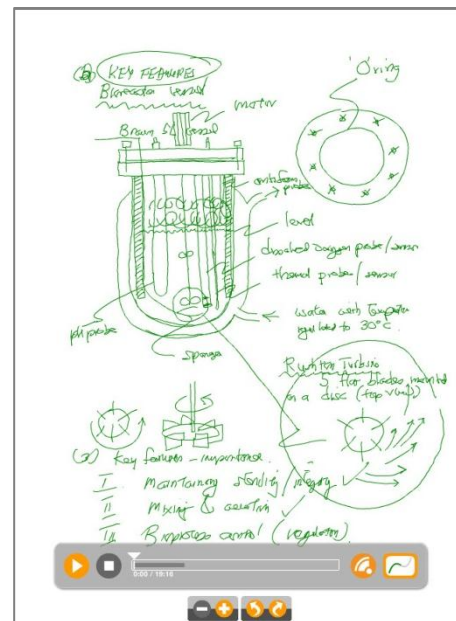 (b) KEY FEATURES
Bioreactor vessel
'O' ring
motor
Braun 5L vessel
antifoam probes
level
dissolved oxygen probe/sensor
thermal probe/sensor
water with
regulated to 30°C.
pH probe
sparger
Rushton Turbine
5 flat blades mounted
on a disc (top view)
(a) Key features - importance.
I Maintaining sterility/integrity
II Mixing & aeration
III Bioprocess control (regulation).
0:00 / 19:16